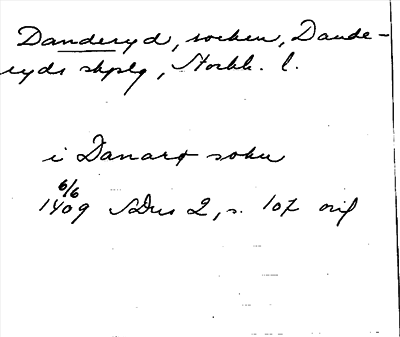 Danderyd, socken, Dande-
ryds skplg, Stockh. l.
i Danarø sokn
6/6
1409 SDns 2, s. 107 orig